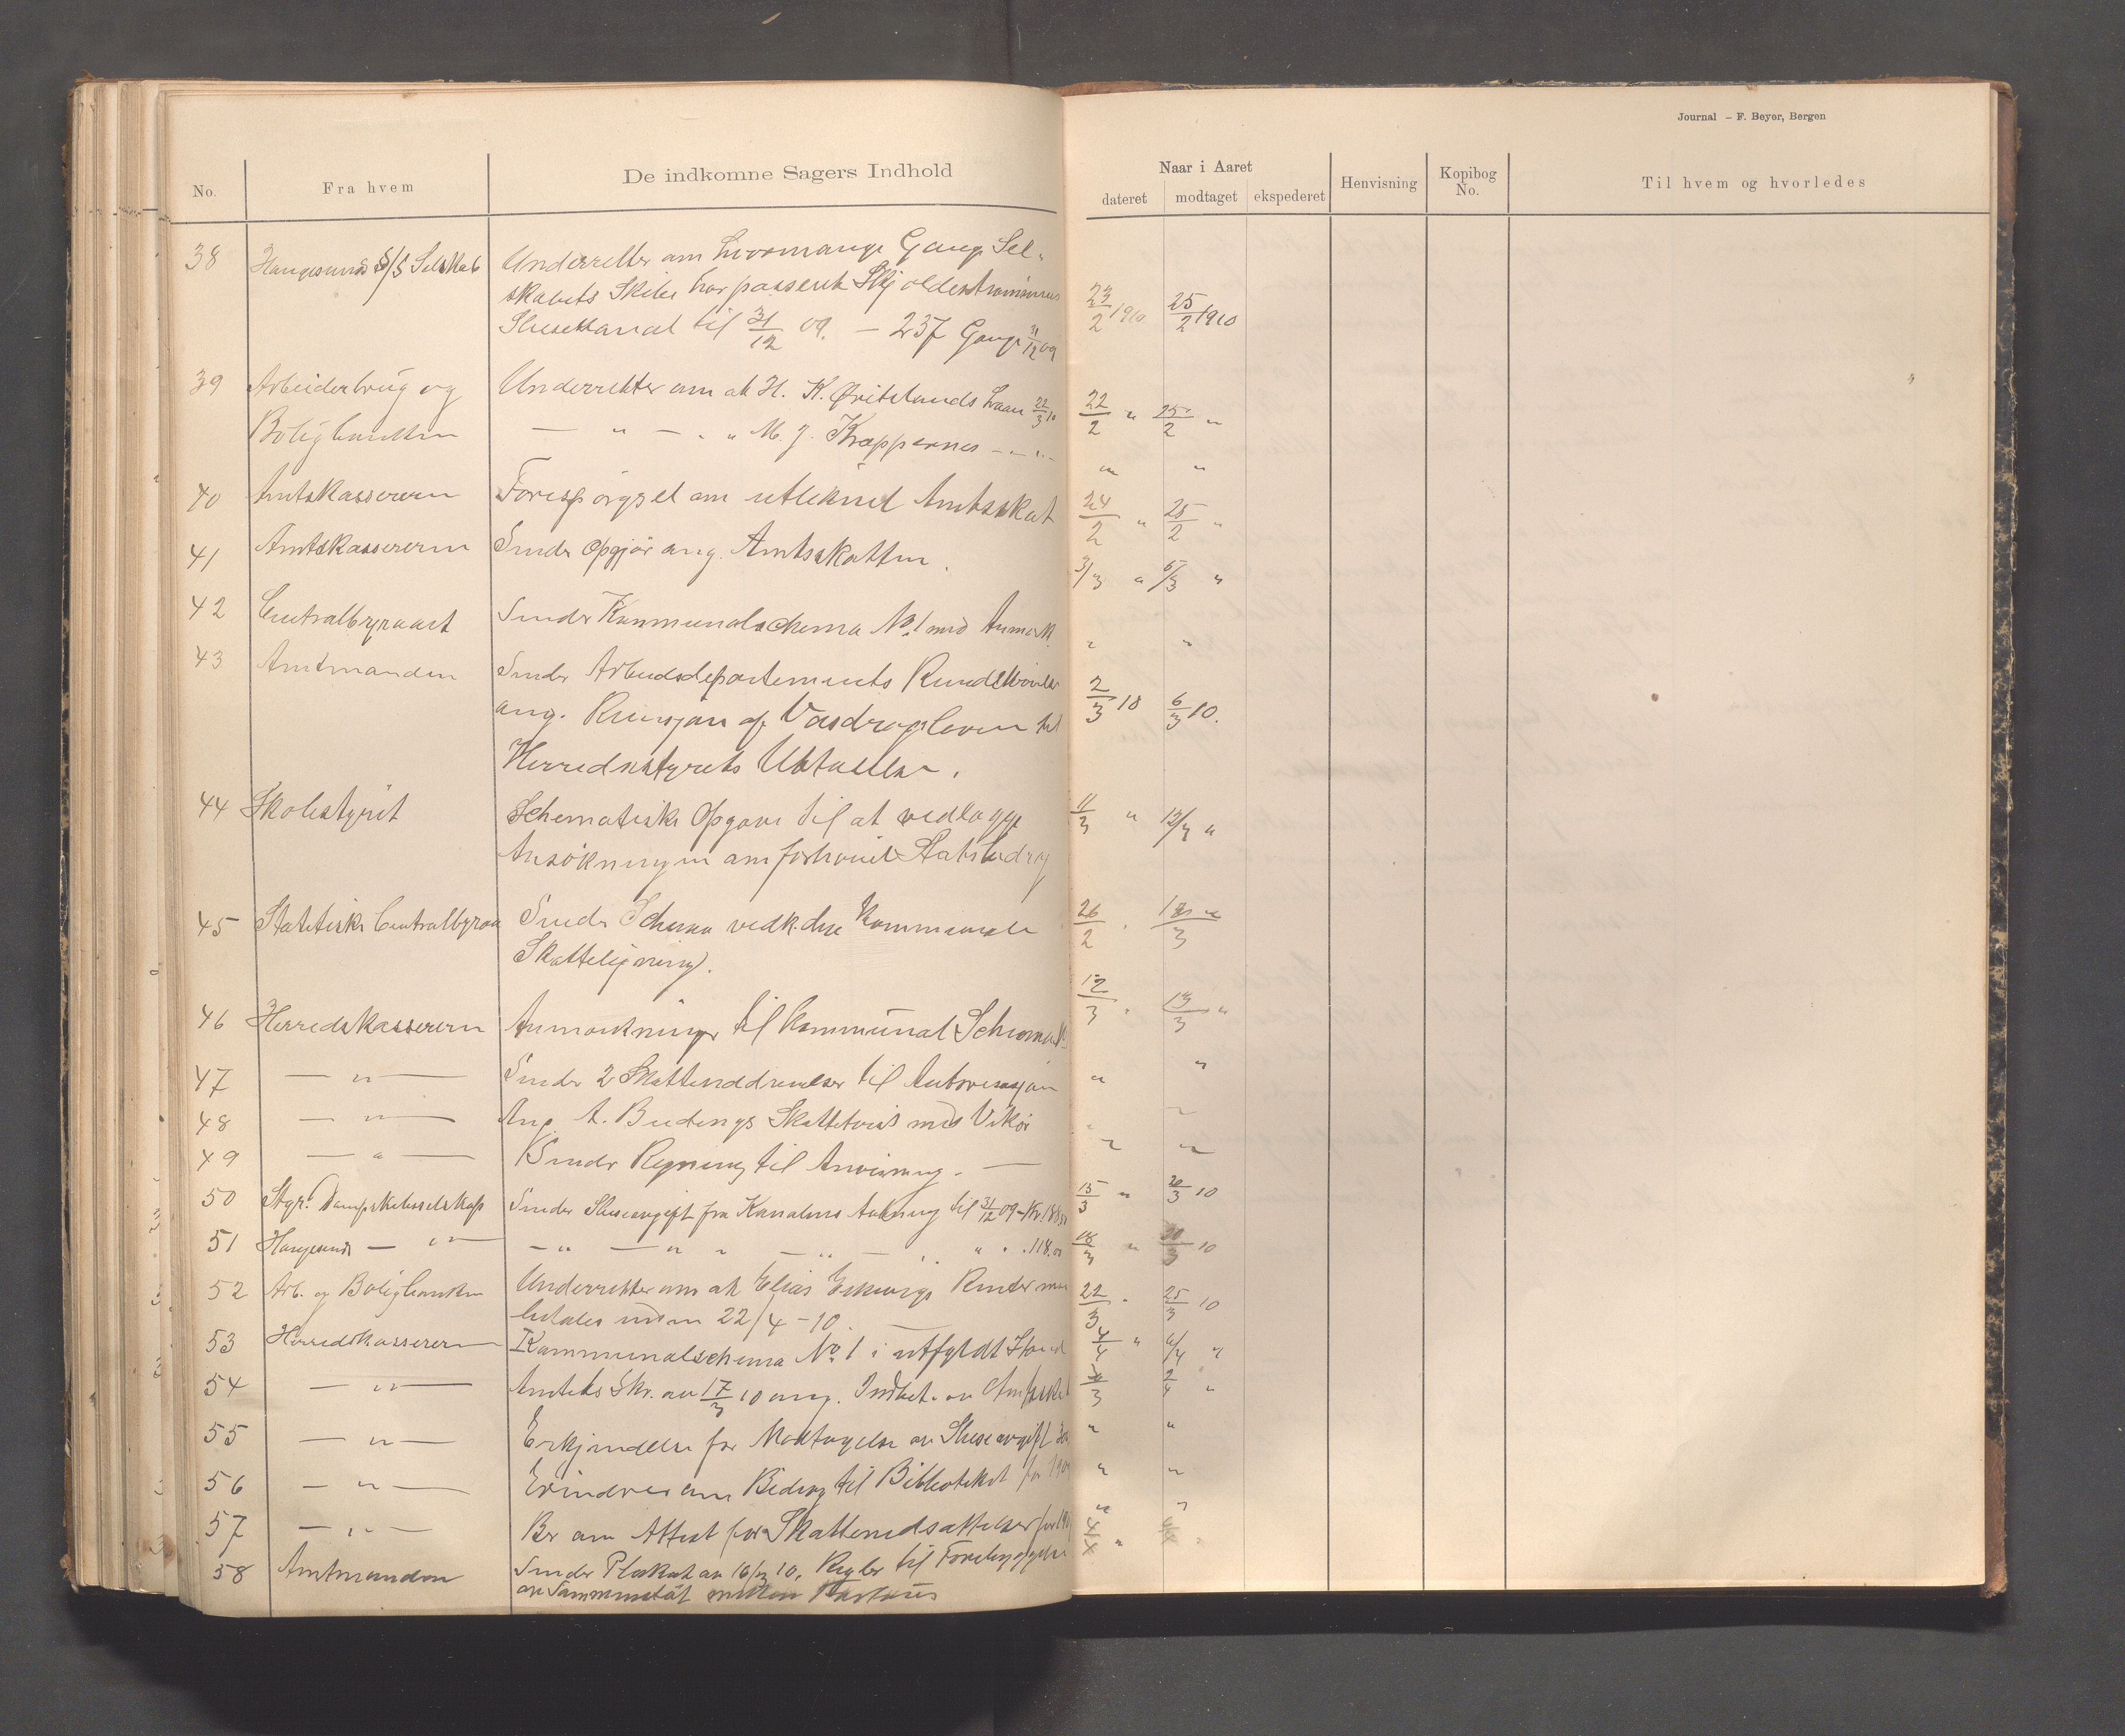 Journal – F. Beyer, Bergen
No. Fra hvem De indkomne Sagers Indhold Naar i Aaret dateret modtaget ekspederet Henvisning Kopibog No. Til hvem og hvorledes
38 Haugesunds D/S Selskab Underretter om hvormange Gange Sel-
skabets Skibe har passeret Skjoldestrømmens 23/2 1910 25/2 1910
Slusekanal til 31/12 09. – 237 Gange 31/12 09
39 Arbeiderbrug og Underretter om at H. K. Laan 22/3 10 22/2 " 25/2 "
Boligbanken — " — " " M. J. — " " "
40 Amtskassereren Forespørgsel om utliknet Amtsskat 24/2 " 25/2 "
41 Amtskassereren Sender Opgjør ang. Amtsskatten. 3/3 " 5/3 "
42 Centralbyraaet Sender Kommunalschema No. 1 med Anmerk. " "
43 Amtmanden Sender Arbeidsdepartements Rundskrivelse
ang. Revisjon af Vasdragsloven til 2/3 10 6/3 10.
Herredsstyrets Uttalelse.
44 Skolestyret Schematiske Opgave til at vedlægge 11/3 " 12/3 "
Ansøkningen om forhøiet Statsbidrag
45 Statistiske Centralbyraa Sender Schema vedk. den kommunale 26/2 " 13/3 "
Skatteligning.
46 Herredskassereren Anmerkninger til Kommunal Schema 12/3 " 13/3 "
47 — " — Sender 2 til " "
48 — " — Ang. A. Skattetvist med Vikør "
49 — " — Sender Regning til Anvisning. — " "
50 Dampskibsselskap Sender Sluseavgift fra Kanalens Aabning til 31/12 09 – Kr. 15/3 " 20/3 10
51 Haugesunds — " — — " — " " — " — " " 118.00 18/3 " 20/3 10
52 Arb. og Boligbanken Underretter om at Elias Renter maa 22/3 " 25/3 10
betales inden 22/4 – 10. —
53 Herredskassereren Kommunalschema No. 1 i utfyldt Stand 4/4 " 4/4 "
54 — " — Amtets Skr. av 17/3 10 ang. Indbet. av Amtsskat 2/4 "
55 — " — Erkjendelse for Mottagelse av Sluseavgift " "
56 — " — Erindres om Bidrag til Bibliotekst for 1909 " "
57 — " — Ber om Attest for Skattenedsættelser for " "
58 Amtmanden Sender Plakat av 16/3 10, Regler til Forebyggelse 4/4 "
av Sammenstøt mellem